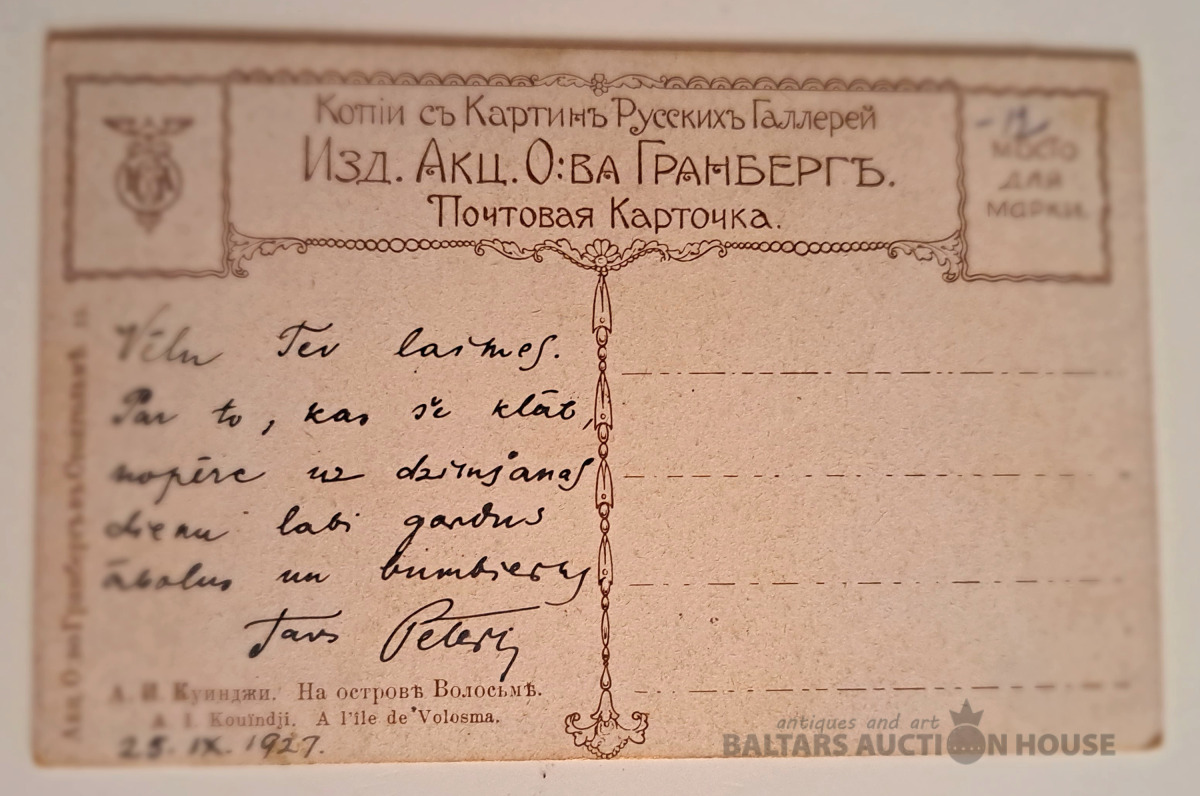 Копіи съ Картинъ Русскихъ Галлерей
Изд. Акц. О:ва Гранбергъ.
Почтовая Карточка.
Мѣсто
для
марки.
Vēlu Tev laimes.
Par to, kas še klāt,
nopērc uz dzimšanas
dienu labi gardus
ābolus un bumbierus
Tavs Pēteris
А. И. Куинджи. На островѣ Волосьмѣ.
A. I. Kouïndji. A l'île de Volosma.
25. IX. 1927.
Акц. О-во Гранбергъ въ Стокгольмѣ.
antiques and art
BALTARS AUCTION HOUSE